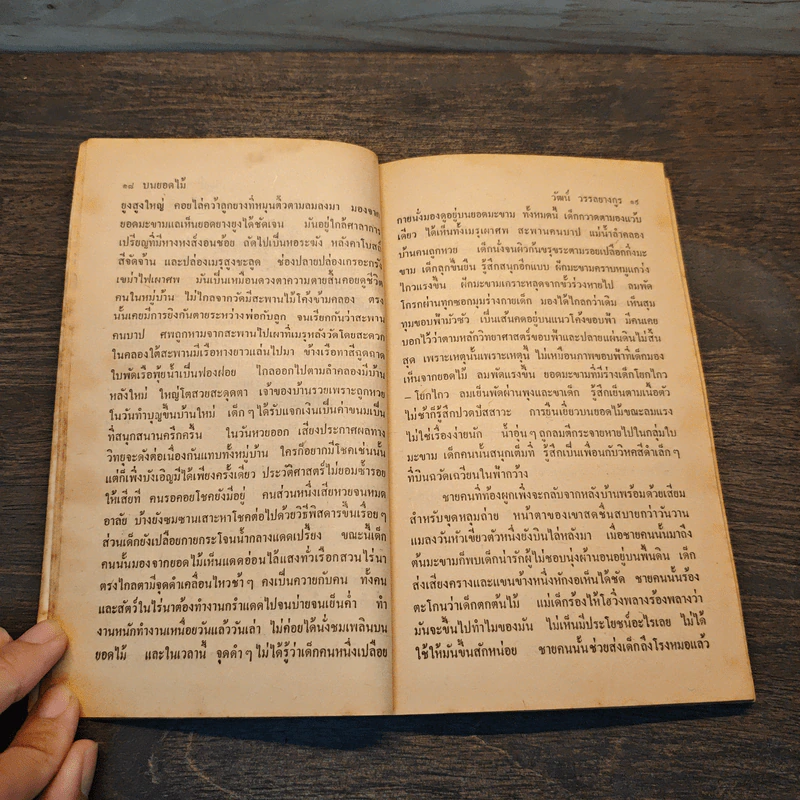 ๑๘ บนยอดไม้
ยูงสูงใหญ่ คอยไล่คว้าลูกยางที่หมุนติ้วตามลมลงมา มองจาก
ยอดมะขามแลเห็นยอดยางยูงได้ชัดเจน มันอยู่ใกล้ศาลาการ
เปรียญที่มีหางหงส์งอนช้อย ถัดไปเป็นหอระฆัง หลังคาโบสถ์
สีจัดจ้าน และปล่องเมรุสูงชะลูด ช่องปลายปล่องเกรอะกรัง
เขม่าไฟเผาศพ มันเป็นเหมือนดวงตาความตายสิ้นคอยดูชีวิต
คนในหมู่บ้าน ไม่ไกลจากวัดมีสะพานไม้โค้งข้ามคลอง ตรง
นั้นเคยมีการยิงกันตายระหว่างพ่อกับลูก จนเรียกกันว่าสะพาน
คนบาป ศพถูกหามจากสะพานไปเผาที่เมรุหลังวัดโดยสะดวก
ในคลองใต้สะพานมีเรือหางยาวแล่นไปมา ข้างเรือทาสีฉูดฉาด
ใบพัดเรือพุ้ยน้ำเป็นฟองฝอย ไกลออกไปตามลำคลองมีบ้าน
หลังใหม่ ใหญ่โตสวยสะดุดตา เจ้าของบ้านรวยเพราะถูกหวย
ในวันทำบุญขึ้นบ้านใหม่ เด็กๆ ได้รับแจกเงินเป็นค่าขนมเป็น
ที่สนุกสนานครึกครื้น ในวันหวยออก เสียงประกาศผลทาง
วิทยุจะดังต่อเนื่องกันแทบทั้งหมู่บ้าน ใครก็อยากมีโชคเช่นนั้น
แต่ก็เพิ่งบังเอิญมีได้เพียงครั้งเดียว ประวัติศาสตร์ไม่ยอมซ้ำรอย
ให้เสียที คนรอคอยโชคยังมีอยู่ คนส่วนหนึ่งเสียหวยจนหมด
อาลัย บ้างยังซมซานเสาะหาโชคต่อไปด้วยวิธีพิสดารขึ้นเรื่อยๆ
ส่วนเด็กยังเปลือยกายกระโจนน้ำกลางแดดเปรี้ยง ขณะนี้เด็ก
คนนั้นมองจากยอดไม้เห็นแดดอ่อนไล้แสงทั่วเรือกสวนไร่นา
ตรงไกลตามีจุดดำเคลื่อนไหวช้าๆ คงเป็นควายกับคน ทั้งคน
และสัตว์ในไร่นาต้องทำงานกรำแดดไปจนบ่ายจนเย็นค่ำ ทำ
งานหนักทำงานเหนื่อยวันแล้ววันเล่า ไม่ค่อยได้นั่งชมเพลินบน
ยอดไม้ และในเวลานี้ จุดดำๆ ไม่ได้รู้ว่าเด็กคนหนึ่งเปลือย
วัฒน์ วรรลยางกูร ๑๙
กายนั่งมองดูอยู่บนยอดมะขาม ทั้งหมดนี้ เด็กกวาดตามองแว้บ
เดียว ได้เห็นทั้งเมรุเผาศพ สะพานคนบาป แม่น้ำลำคลอง
บ้านคนถูกหวย เด็กนั่งจนผิวก้นขรุขระตามรอยเปลือกกิ่งมะ
ขาม เด็กลุกขึ้นยืน รู้สึกสนุกอีกแบบ ฝักมะขามคราบหมูแกว่ง
ไกวแรงขึ้น ฝักมะขามเกราะหลุดจากขั้วร่วงหายไป ลมพัด
โกรกผ่านทุกซอกมุมร่างกายเด็ก มองได้ไกลกว่าเดิม เห็นสุม
ทุมขอบฟ้ามัวซัว เป็นเส้นกดอยู่บนแนวโค้งขอบฟ้า มีคนเคย
บอกไว้ว่าตามหลักวิทยาศาสตร์ขอบฟ้าและปลายแผ่นดินไม่สิ้น
สุด เพราะเหตุนั้นเพราะเหตุนี้ ไม่เหมือนภาพขอบฟ้าที่เด็กมอง
เห็นจากยอดไม้ ลมพัดแรงขึ้น ยอดมะขามที่มีร่างเด็กโยกไกว
– โยกไกว ลมเย็นพัดผ่านพุงและขาเด็ก รู้สึกเย็นตามเนื้อตัว
ไม่ช้าก็รู้สึกปวดปัสสาวะ การยืนเยี่ยวบนยอดไม้ขณะลมแรง
ไม่ใช่เรื่องง่ายนัก น้ำอุ่นๆ ถูกลมตีกระจายหายไปในกลุ่มใบ
มะขาม เด็กคนนั้นสนุกเต็มที่ รู้สึกเป็นเพื่อนกับวิหคสีดำเล็กๆ
ที่บินฉวัดเฉวียนในฟ้ากว้าง
ชายคนที่ท้องผูกเพิ่งจะกลับจากหลังบ้านพร้อมด้วยเสียม
สำหรับขุดหลุมถ่าย หน้าตาของเขาสดชื่นสบายกว่าวันวาน
แมลงวันหัวเขียวตัวหนึ่งยังบินไล่หลังมา เมื่อชายคนนั้นมาถึง
ต้นมะขามก็พบเด็กน่ารักผู้ไม่ชอบนุ่งผ้านอนอยู่บนพื้นดิน เด็ก
ส่งเสียงครางและแขนข้างหนึ่งหักงอเห็นได้ชัด ชายคนนั้นร้อง
ตะโกนว่าเด็กตกต้นไม้ แม่เด็กร้องไห้โฮวิ่งพลางร้องพลางว่า
มันจะขึ้นไปทำไมของมัน ไม่เห็นมีประโยชน์อะไรเลย ไม่ได้
ใช้ให้มันขึ้นสักหน่อย ชายคนนั้นช่วยส่งเด็กถึงโรงหมอแล้ว